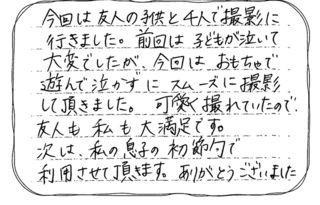 今回は友人の子供と4人で撮影に
行きました。前回は子どもが泣いて
大変でしたが、今回はおもちゃで
遊んで泣かずにスムーズに撮影
して頂きました。可愛く撮れていたので
友人も私も大満足です。
次は、私の息子の初節句で
利用させて頂きます。ありがとうございました